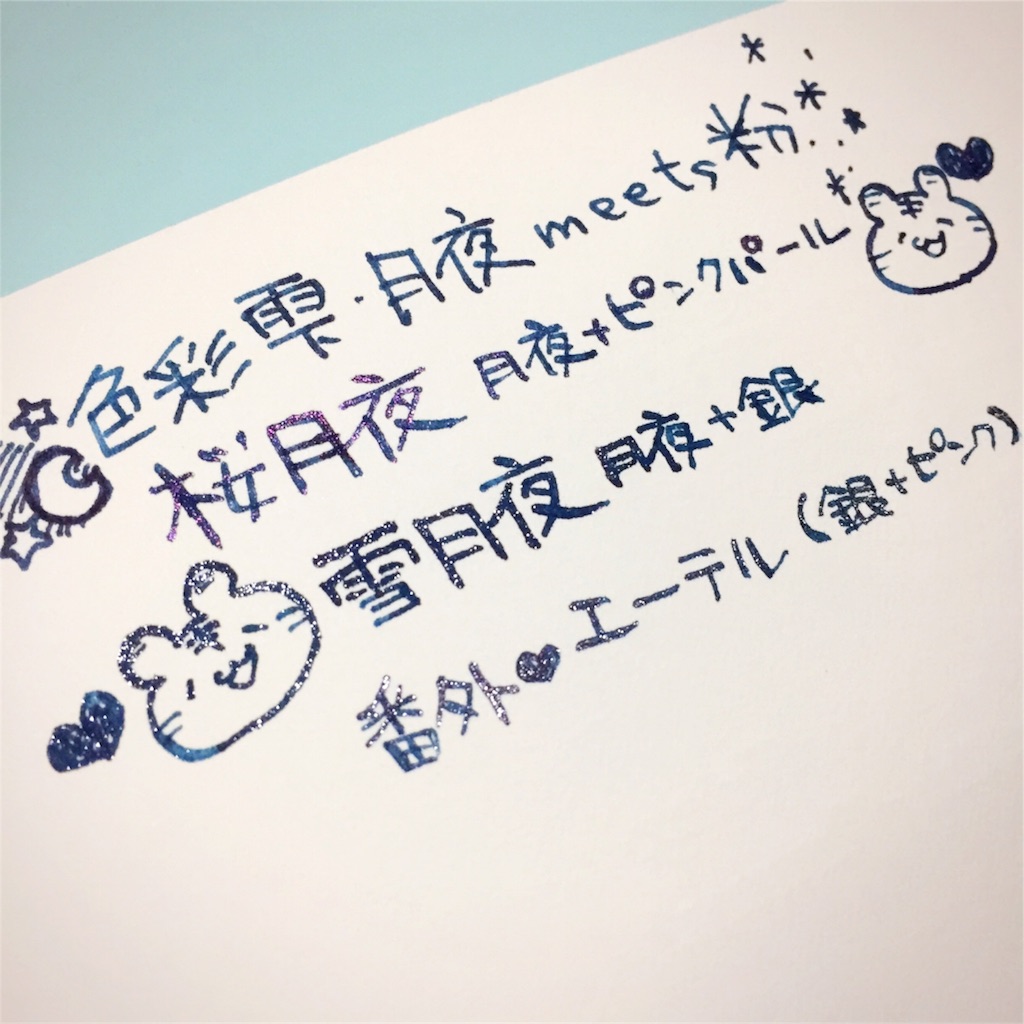 色彩雫・月夜meets粉
桜月夜 月夜+ピンクパール
雪月夜 月夜+銀
番外♥エーテル(銀+ピンク)